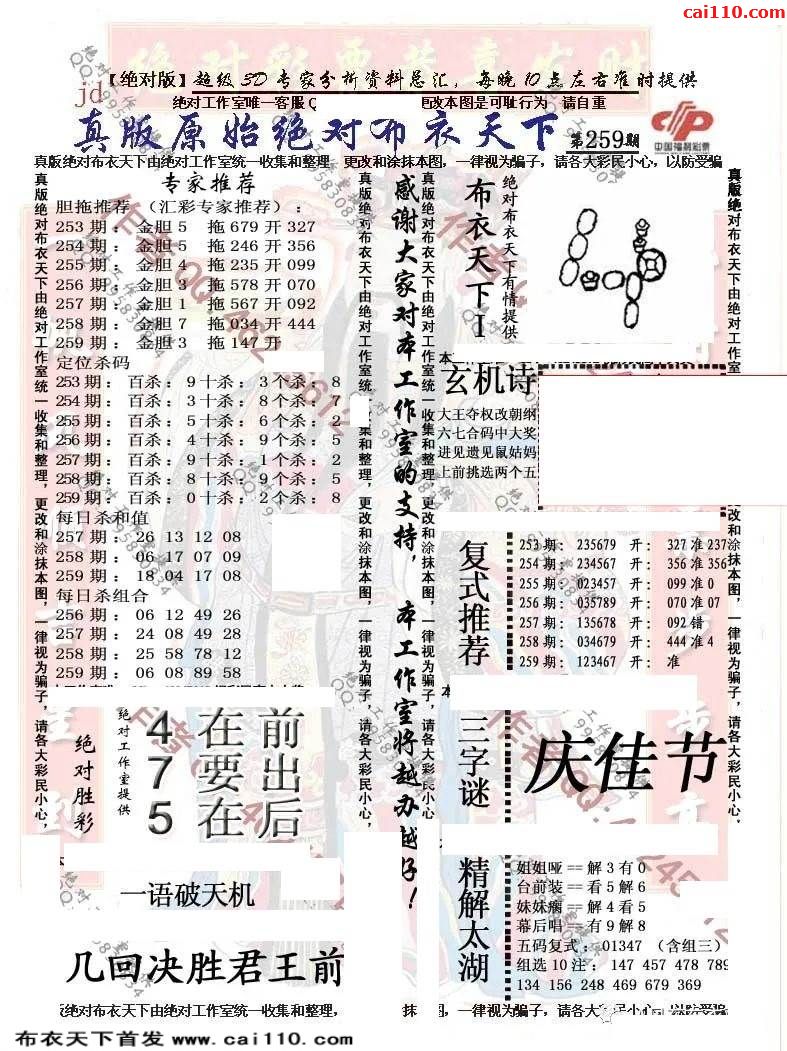 cai110.com
【绝对版】超级3D专家分析资料总汇，每晚10点左右准时提供
jd
绝对工作室唯一客服Q
更改本图是可耻行为 请自重
真版原始绝对布衣天下 第259期
中国福利彩票
真版绝对布衣天下由绝对工作室统一收集和整理，更改和涂抹本图，一律视为骗子，请各大彩民小心，以防受骗
真版绝对布衣天下由绝对工作室统一收集和整理，更改和涂抹本图，一律视为骗子，请各大彩民小心，
专家推荐
胆拖推荐 （汇彩专家推荐）：
253期：金胆5 拖679开327
254期：金胆5 拖246开356
255期：金胆4 拖235开099
256期：金胆3 拖578开070
257期：金胆1 拖567开092
258期：金胆7 拖034开444
259期：金胆3 拖147开
定位杀码
253期：百杀：9十杀：3个杀：8
254期：百杀：3十杀：8个杀：7
255期：百杀：5十杀：6个杀：2
256期：百杀：4十杀：9个杀：5
257期：百杀：9十杀：1个杀：2
258期：百杀：8十杀：9个杀：5
259期：百杀：0十杀：2个杀：8
每日杀和值
257期：26 13 12 08
258期：06 17 07 09
259期：18 04 17 08
每日杀组合
256期：06 12 49 26
257期：24 08 49 28
258期：25 58 78 12
259期：06 08 89 58
绝对胜彩
绝对工作室提供
4在前
7要出
5在后
一语破天机
几回决胜君王前
真版绝对布衣天下由绝对工作室统一收集和整理，更改和涂抹本图，一律视为骗子，请各大彩民小心，
感谢大家对本工作室的支持，本工作室将越办越好！
真版绝对布衣天下由绝对工作室统一收集和整理，更改和涂抹本图，一律视为骗子，请各大彩民小心，
布衣天下I
绝对布衣天下有情提供
玄机诗
大王夺权改朝纲
六七合码中大奖
进见遗见鼠姑妈
上前挑选两个五
复式推荐
253期： 235679 开： 327准237
254期： 234567 开： 356准356
255期： 023457 开： 099准0
256期： 035789 开： 070准07
257期： 135678 开： 092错
258期： 034679 开： 444准4
259期： 123467 开： 准
三字谜
庆佳节
精解太湖
姐姐哑==解3有0
台前装==看5解6
妹妹瘸==解4看5
幕后唱==有9解8
五码复式：01347 （含组三）
组选10注：147 457 478 789
134 156 248 469 679 369
真版绝对布衣天下由绝对工作室统一收集和整理，更改和涂抹本图，一律视为骗子，请各大彩民小心，
版绝对布衣天下由绝对工作室统一收集和整理，
抹本图，一律视为骗子，请各大彩民小心，以防受骗
布衣天下首发 www.cai110.com